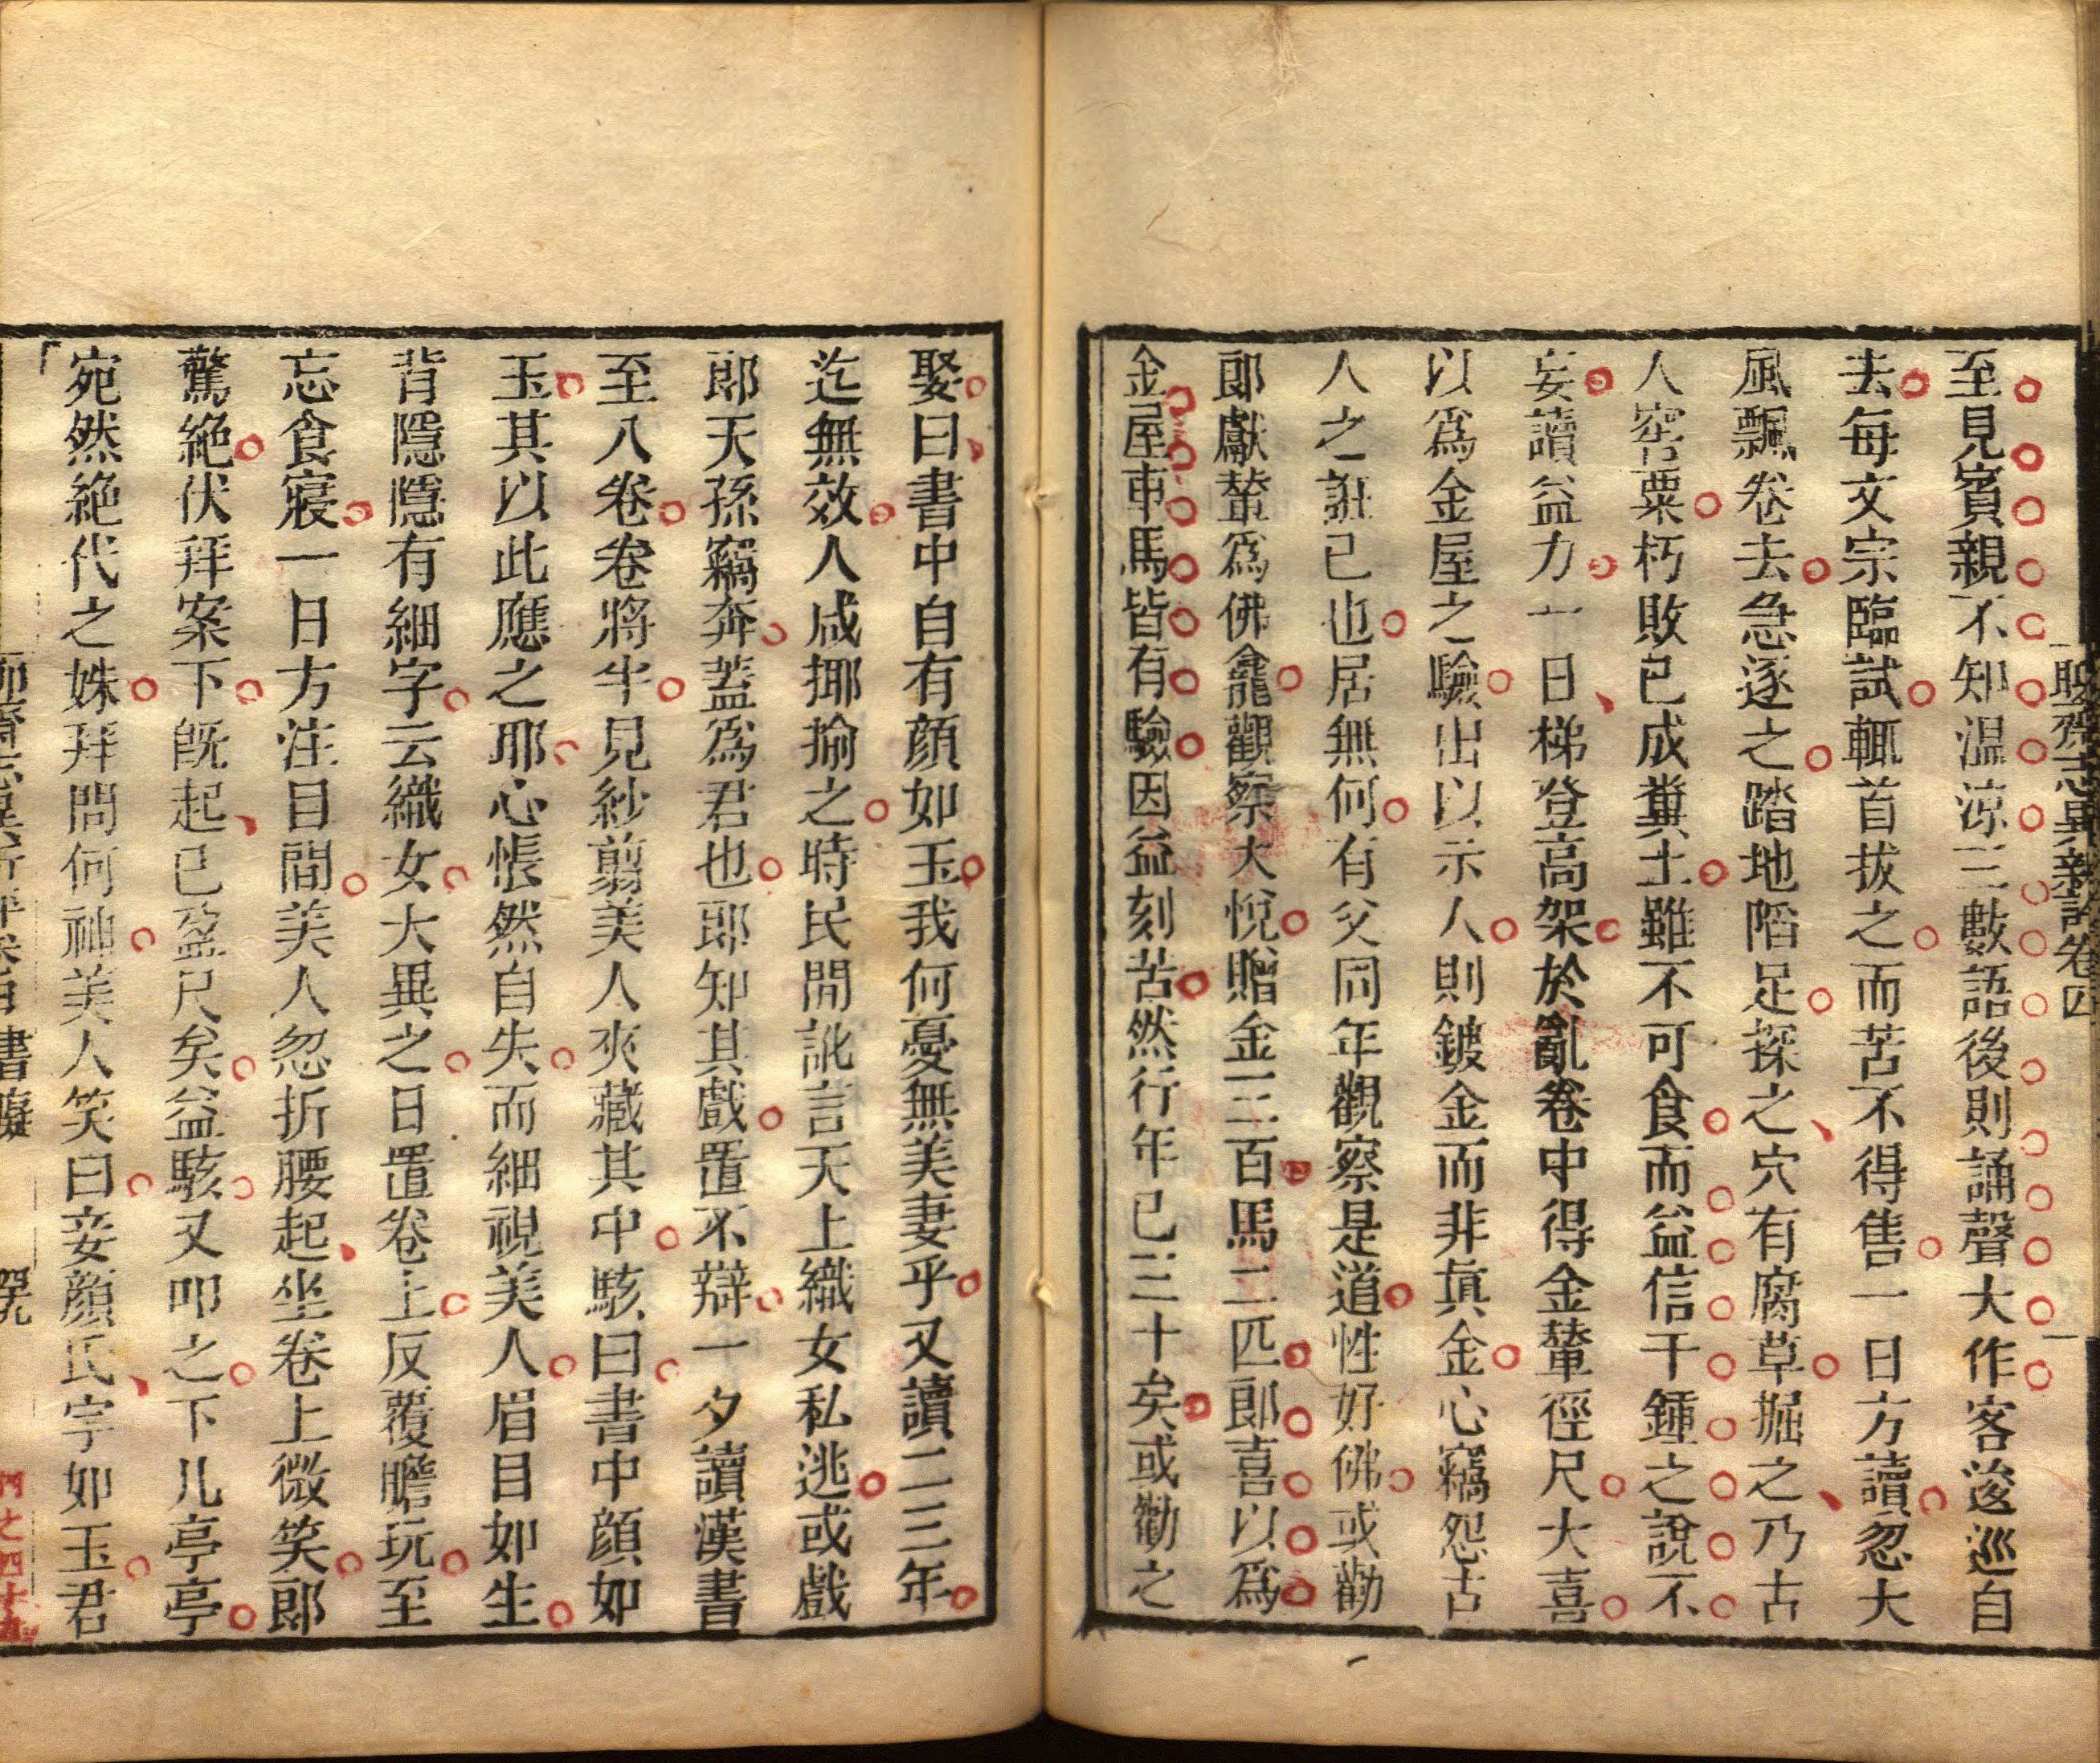 聊齋志異新評卷四
至見賓親不知温涼三數語後則誦聲大作客逡巡自
去每文宗臨試輒首拔之而苦不得售一日方讀忽大
風飄卷去急逐之踏地陷足探之穴有腐草掘之乃古
人窖粟朽敗已成糞土雖不可食而益信千鍾之說不
妄讀益力一日梯登高架於亂卷中得金輦徑尺大喜
以爲金屋之驗出以示人則鍍金而非真金心竊怨古
人之誑己也居無何有父同年觀察是道性好佛或勸
郎獻輦爲佛龕觀察大悅贈金三百馬二匹郎喜以爲
金屋車馬皆有驗因益刻苦然行年已三十矣或勸之
娶曰書中自有顔如玉我何憂無美妻乎又讀二三年
迄無效人咸揶揄之時民間訛言天上織女私逃或戲
郎天孫竊奔蓋爲君也郎知其戲置不辯一夕讀漢書
至八卷卷將半見紗翦美人夾藏其中駭曰書中顔如
玉其以此應之耶心悵然自失而細視美人眉目如生
背隱隱有細字云織女大異之日置卷上反覆瞻玩至
忘食寢一日方注目間美人忽折腰起坐卷上微笑郎
驚絶伏拜案下旣起已盈尺矣益駭又叩之下几亭亭
宛然絶代之姝拜問何神美人笑曰妾顔氏字如玉君
聊齋志異新評卷四 書癡
何之四十九